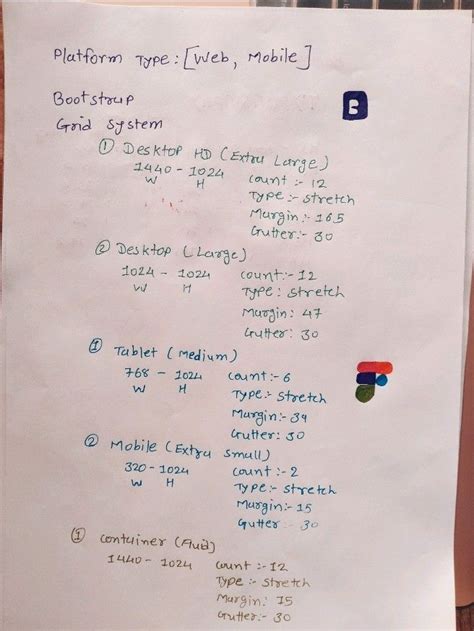 Platform Type: [Web, Mobile]
Bootstrap
B
Grid System
① Desktop HD (Extra Large)
1440 - 1024
W H
Count :- 12
Type :- Stretch
Margin :- 165
Gutter :- 30
② Desktop (Large)
1024 - 1024
W H
Count :- 12
Type : Stretch
Margin : 47
Gutter : 30
① Tablet (Medium)
768 - 1024
W H
Count :- 6
Type :- Stretch
Margin :- 39
Gutter : 30
② Mobile (Extra Small)
320 - 1024
W H
Count :- 2
Type :- Stretch
Margin :- 15
Gutter :- 30
① Container (Fluid)
1440 - 1024
Count :- 12
Type :- Stretch
Margin : 15
Gutter :- 30